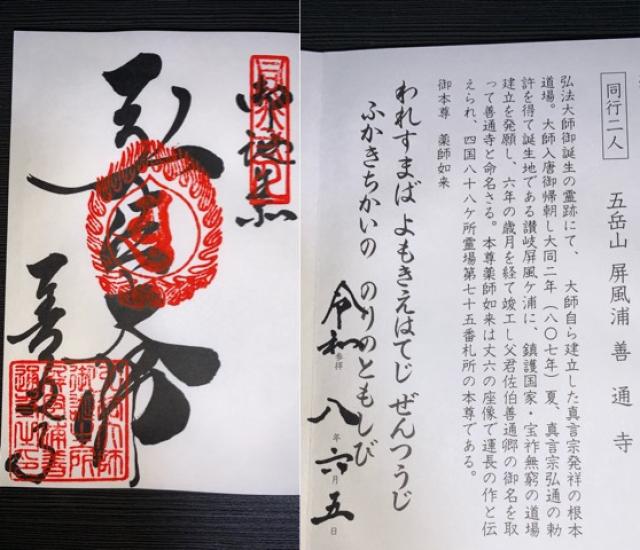 御誕生所
弘法大師
善通寺
五岳山 屏風浦 善通寺
同行二人
弘法大師御誕生の霊跡にて、 大師自ら建立した真言宗発祥の根本
道場。大師入唐御帰朝し大同二年（八〇七年）夏、真言宗弘通の勅
許を得て誕生地である讃岐屏風ケ浦に、鎮護国家・宝祚無窮の道場
建立を発願し、六年の歳月を経て竣工し父君佐伯善通卿の御名を取
って善通寺と命名さる。本尊薬師如来は丈六の座像で運長の作と伝
えられ、四国八十八ケ所霊場第七十五番札所の本尊である。
御本尊 薬師如来
われすまば よもきえはてじ ぜんつうじ
ふかきちかいの のりのともしび
令和 参拝 八年六月五日